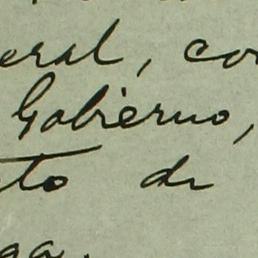 eral, co
Gobierno,
to de
ga.